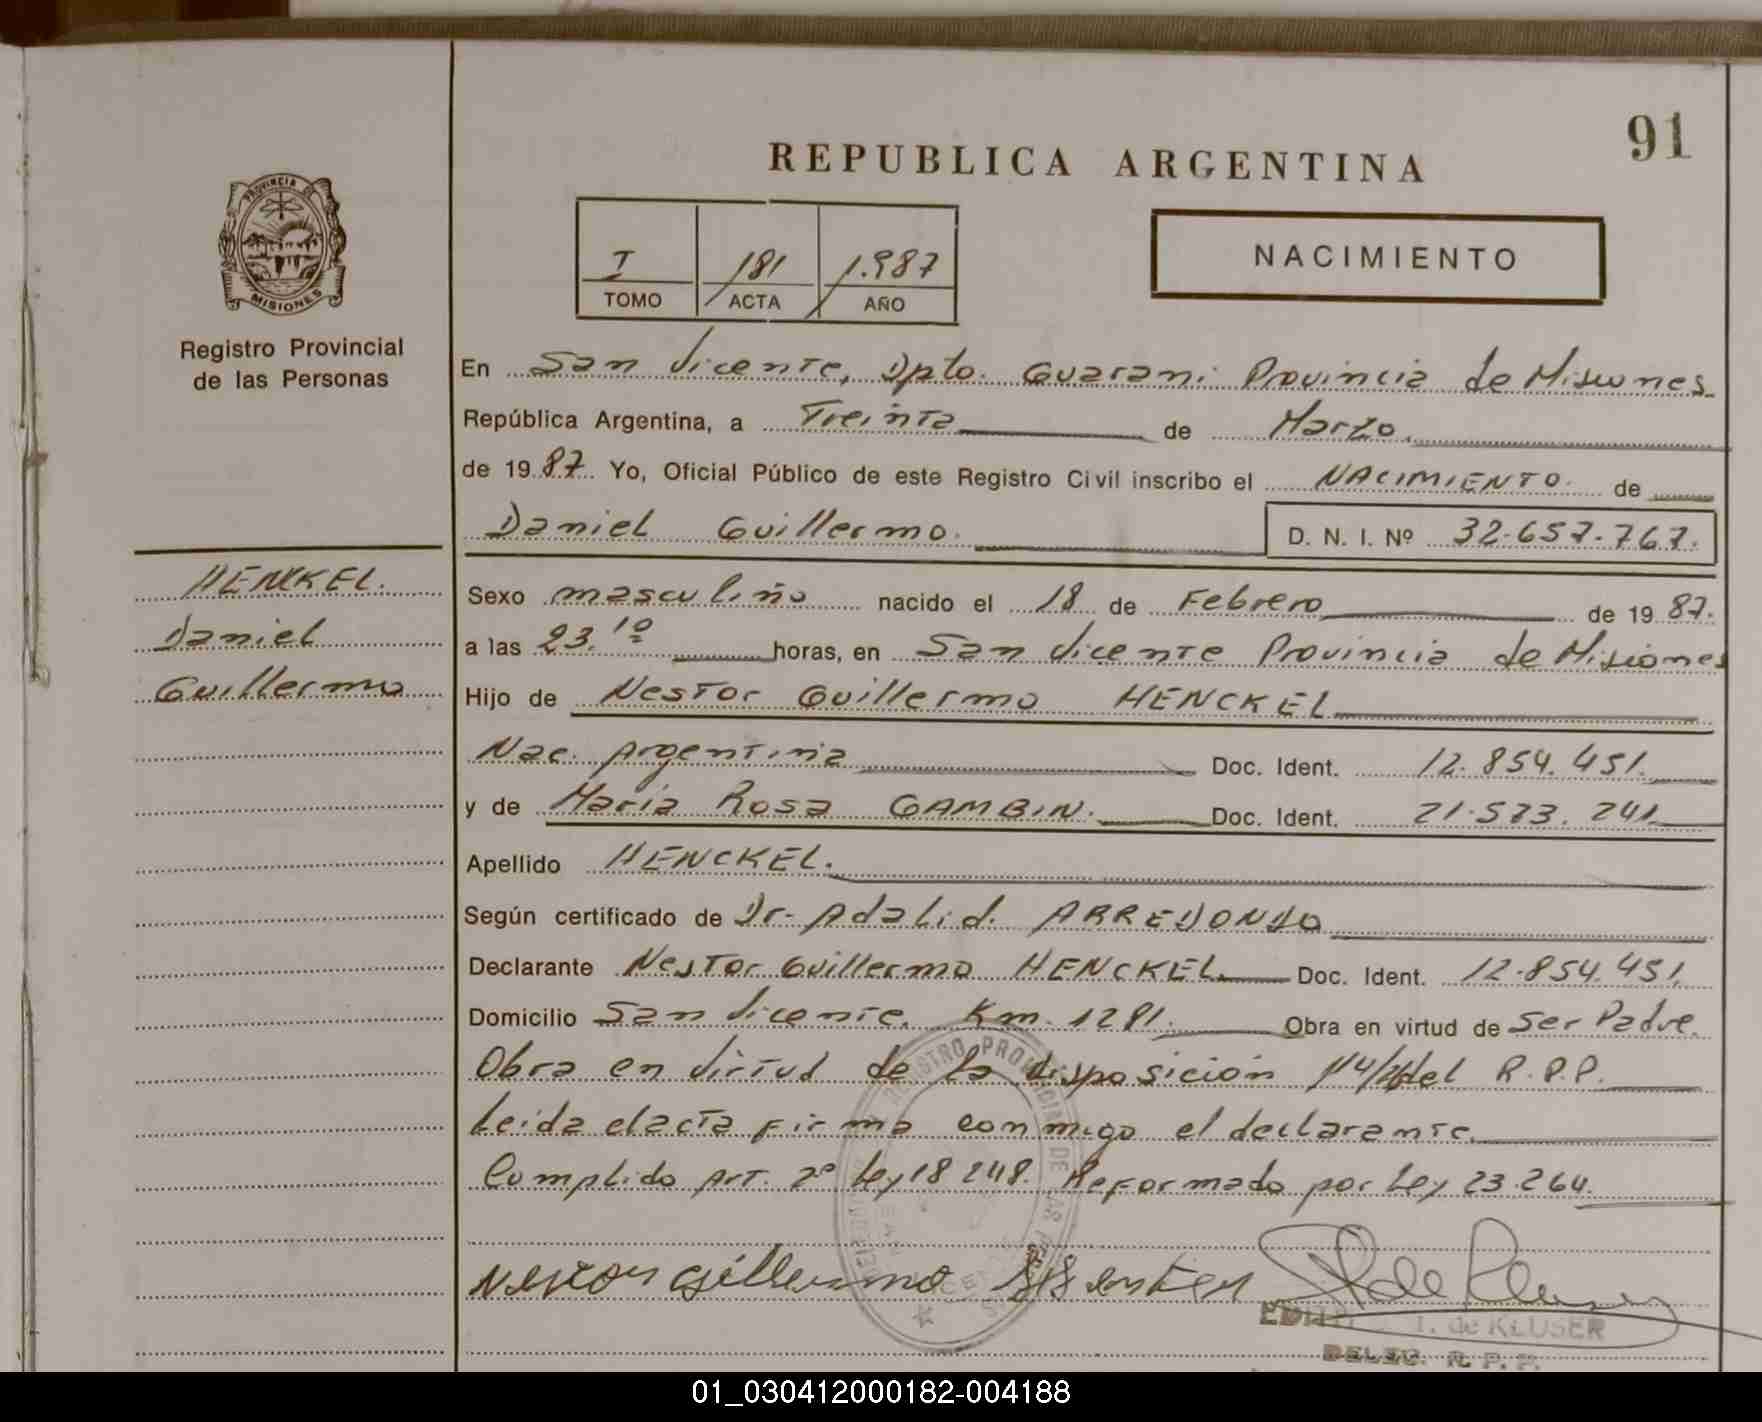 91
REPUBLICA ARGENTINA
PROVINCIA DE
MISIONES
I 181 1.987
TOMO ACTA AÑO
NACIMIENTO
Registro Provincial
de las Personas
En San Vicente, Dpto. Guarani Provincia de Misiones
República Argentina, a Treinta de Marzo.
de 1987. Yo, Oficial Público de este Registro Civil inscribo el NACIMIENTO. de
Daniel Guillermo. D. N. I. Nº 32.657.767.
HENCKEL.
Daniel
Guillermo
Sexo masculino nacido el 18 de Febrero de 1987.
a las 23.10 horas, en San Vicente Provincia de Misiones
Hijo de Nestor Guillermo HENCKEL
Nac. Argentina Doc. Ident. 12.854.451.
y de Maria Rosa GAMBIN. Doc. Ident. 21.573.241.
Apellido HENCKEL.
Según certificado de Dr. Adalid. ARREDONDO
Declarante Nestor Guillermo HENCKEL Doc. Ident. 12.854.451.
Domicilio San Vicente. Km. 1281. Obra en virtud de Ser Padre.
Obra en virtud de la disposición del R.P.P.
Leida el acta firma conmigo el declarante.
Cumplido Art. 2º Ley 18248. Reformado por Ley 23.264.
Nestor Guillermo
T. de KLUSER
DELEG. R. P. P.
01_030412000182-004188